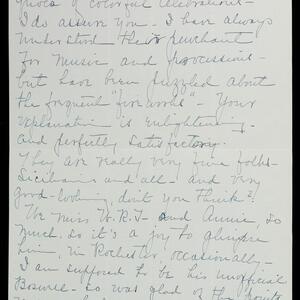 of colorful celebrations -
I do assure you - I have always
understood their penchant
for music and processions -
but have been puzzled about
the frequent "fire works" - Your
explanation is enlightening -
and perfectly satisfactory.
They are really very fine folks -
Sicilians and all - and very
good-looking, don't you think?
We miss W.R.T. and Annie, so
much, so it's a joy to glimpse
him, in Rochester, occasionally -
I am supposed to be his unofficial
Boswell - so was glad of the